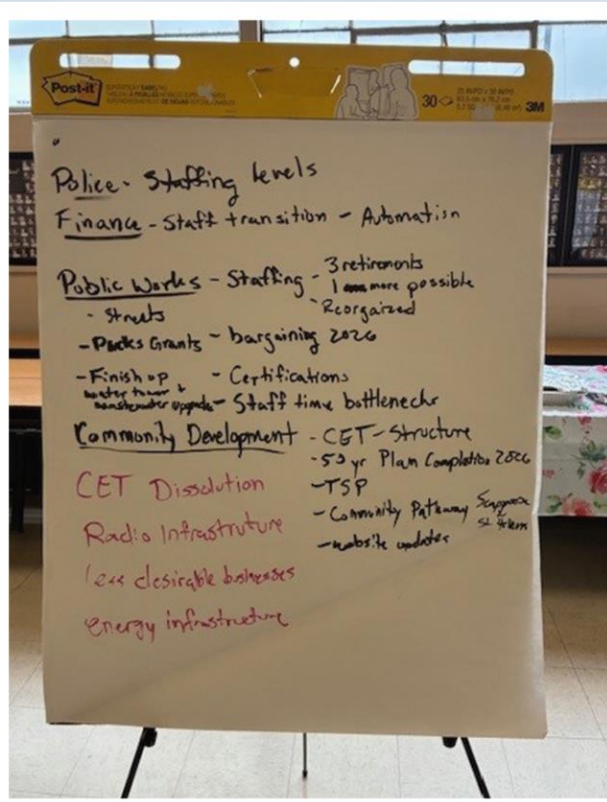 Post-it
30
3M
Police - Staffing levels
Finance - Staff transition - Automatisn
Public Works - Staffing - 3 retirements
1 more possible
- Reorgaized
- Streets
- Parks Grants - bargaining 2026
- Finish up
water tower +
wastewater upgrade
- Certifications
- Staff time bottlenecks
Community Development - CET - Structure
- 50 yr Plan Completion 2026
- TSP
- Community Pathway Scappoose
St Helens
- website updates
CET Dissolution
Radio Infrastruture
less desirable businesses
energy infrastructure